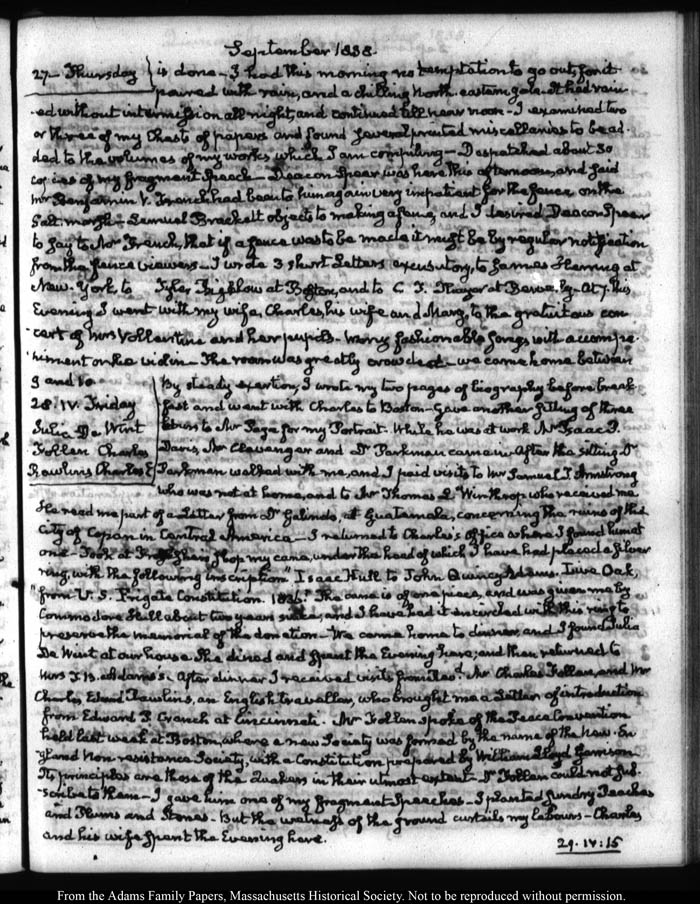 September 1838.
27. Thursday is done - I had this morning no temptation to go out, for it
poured with rain, and a chilling North-eastern gale. It had rain-
-ed without intermission all night, and continued till near noon - I examined two
or three of my Chests of papers and found several printed miscellanies to be ad-
ded to the volumes of my works which I am compiling - Despatched about 30
copies of my fragment Speech - Deacon Spear was here this afternoon, and said
Mr Benjamin V. French had been to him again very impatient for the fence on the
Salt marsh - Samuel Brackett objects to making a fence, and I desired Deacon Spear
to say to Mr French, that if a fence was to be made it must be by regular notification
from the fence viewers - I wrote 3 short Letters excusatory, to James Herring at
New-York, to Bigelow at Boston, and to C. T. Thayer at Beverly - At 7. this
Evening I went with my wife, Charles, his wife and Mary, to the gratuitous con-
cert of Mrs Vollentine and her pupils - Many fashionable songs with accompa-
niment on the violin - The room was greatly crowded - we came home between
9 and 10
28. IV. Friday By steady exertion, I wrote my two pages of biography before break-
fast and went with Charles to Boston - Gave another sitting of three
Julia De Wint
hours to Mr Page for my Portrait. While he was at work Mr Isaac P.
Follen Charles
Davis, Mr Clevenger and Dr Parkman came in - After the sitting Dr
Rawlins Charles E
Parkman walked with me, and I paid visits to Mr Samuel T. Armstrong
who was not at home, and to Mr Thomas L. Winthrop who received me
He read me part of a Letter from Dr Galindo, at Guatemala, concerning the ruins of the
City of Copan in Central America - I returned to Charles's office where I found him at
one - Took at shop my cane, under the head of which I have had placed a silver
ring, with the following inscription "Isaac Hull to John Quincy Adams. Live Oak,
"from U. S. Frigate Constitution. 1836." The cane is of one piece, and was given me by
Commodore Hull about two years since, and I have had it encircled with this ring to
preserve the memorial of the donation - We came home to dinner, and I found Julia
De Wint at our house. She dined and spent the Evening here, and then returned to
Mrs T. B. Adams's. After dinner I received visits from Mr Charles Follen, and Mr
Charles Edward Rawlins, an English traveller, who brought me a Letter of introduction
from Edward P. Cranch at Cincinnati. Mr Follen spoke of the Peace Convention
held last week at Boston, where a new Society was formed by the name of the New-En-
gland Non resistance Society, with a Constitution prepared by William Lloyd Garrison
Its principles are those of the Quakers in their utmost extent - Dr Follen could not sub-
scribe to them - I gave him one of my fragment Speeches - I planted sundry Peaches
and Plums and Stones - But the wetness of the ground curtails my labours - Charles
and his wife spent the Evening here.
29. IV: 15
From the Adams Family Papers, Massachusetts Historical Society. Not to be reproduced without permission.